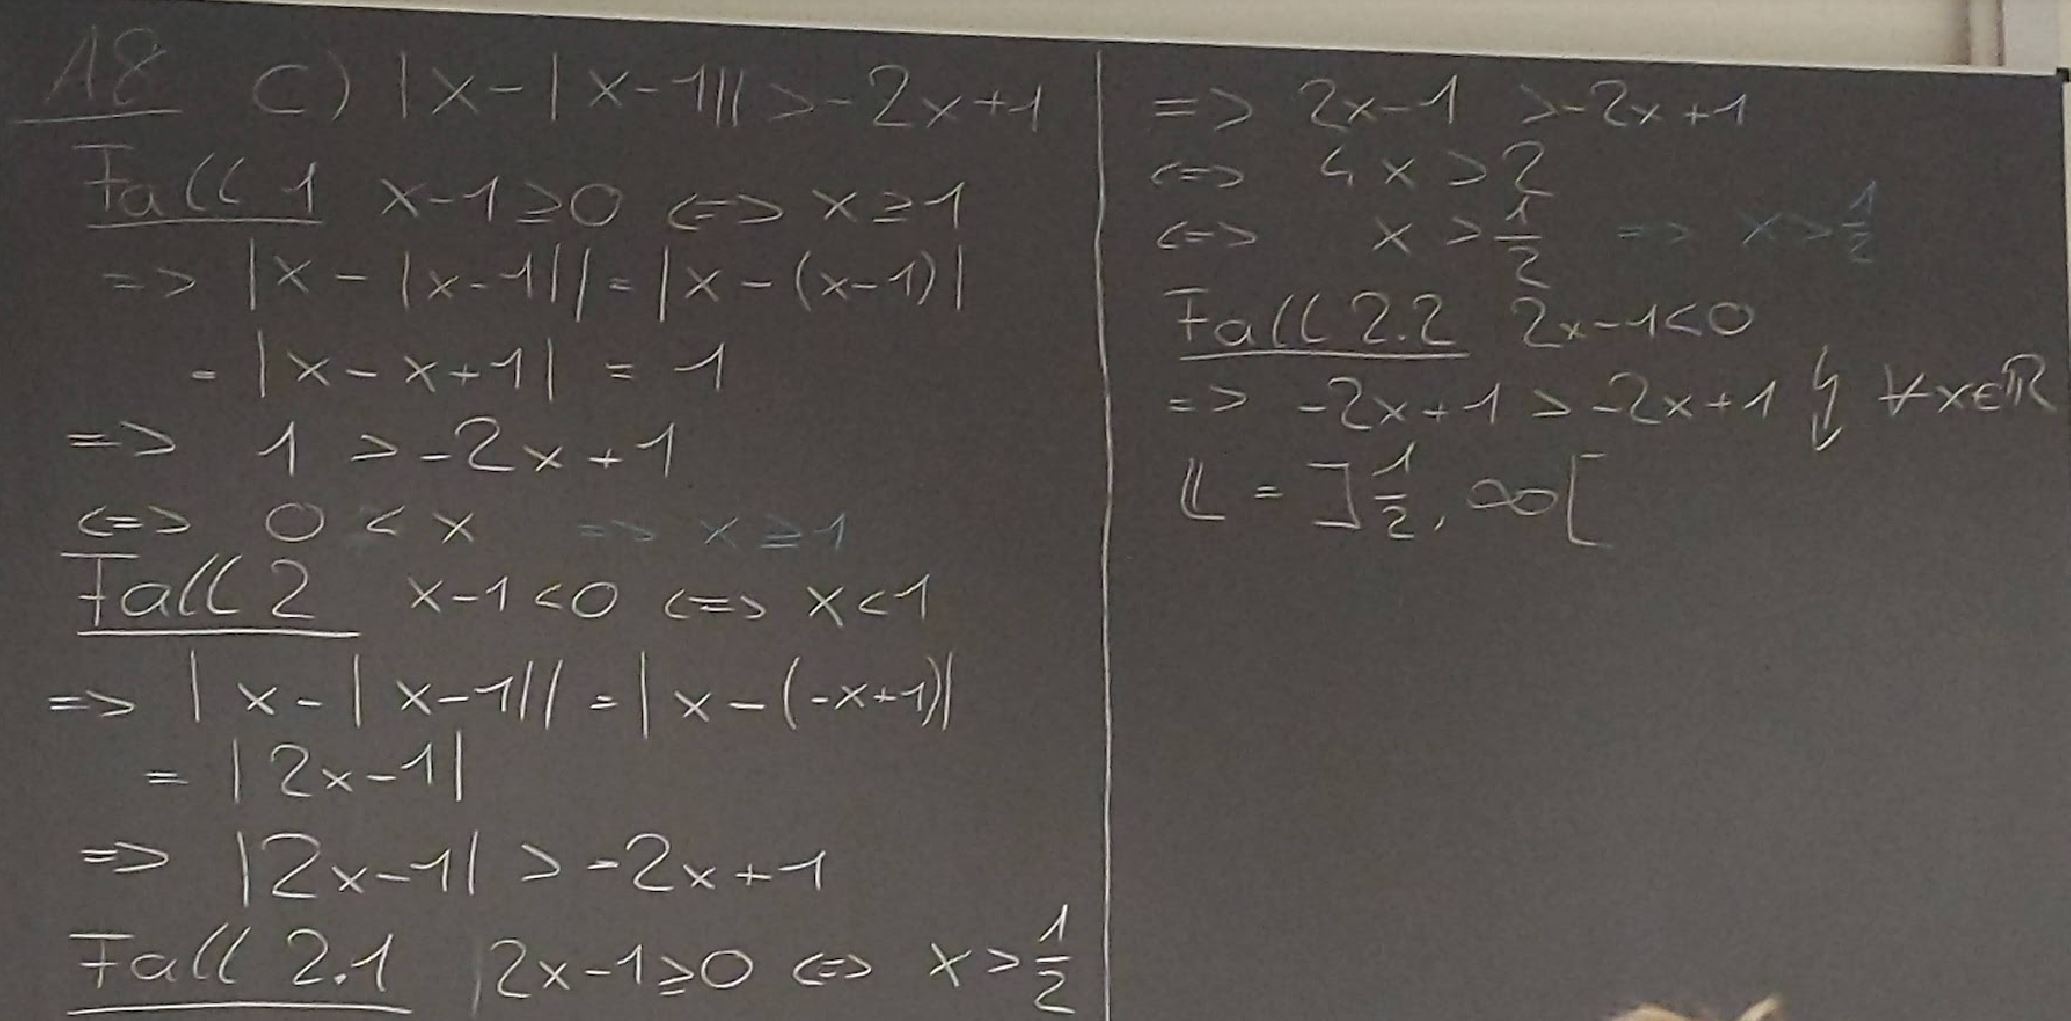 A8 c) |x-|x-1|| > -2x+1
Fall 1 x-1≥0 <=> x≥1
=> |x-|x-1|| = |x-(x-1)|
= |x-x+1| = 1
=> 1 > -2x+1
<=> 0 < x => x≥1
Fall 2 x-1<0 <=> x<1
=> |x-|x-1|| = |x-(-x+1)|
= |2x-1|
=> |2x-1| > -2x+1
Fall 2.1 2x-1≥0 <=> x>1/2
=> 2x-1 > -2x+1
<=> 4x > 2
<=> x > 1/2 => x > 1/2
Fall 2.2 2x-1<0
=> -2x+1 > -2x+1 ↯ ∀x∈ℝ
𝕃 = ]1/2, ∞[